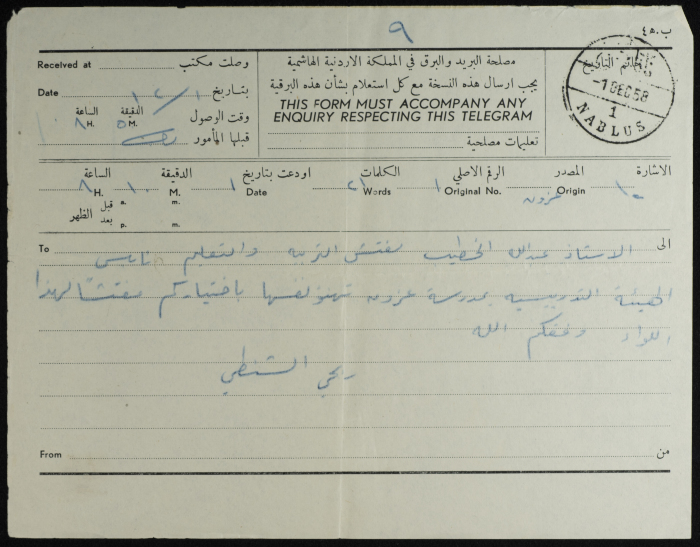 ٩
ب.ه٤
Received at وصلت مكتب
Date بتاريخ ١/١٢
الساعة الدقيقة وقت الوصول
٨ H. ٥ M.
قبلها المأمور
مصلحة البريد والبرق في المملكة الاردنية الهاشمية
يجب ارسال هذه النسخة مع كل استعلام بشأن هذه البرقية
THIS FORM MUST ACCOMPANY ANY
ENQUIRY RESPECTING THIS TELEGRAM
تعليمات مصلحية
خاتم التاريخ
-1 DEC 58
1
NABLUS
الاشارة المصدر الرقم الاصلي الكلمات اودعت بتاريخ الدقيقة الساعة
١٠ Origin عزون Original No. ١ Words ٢١ Date ١ M. ١٠ H. ٨
قبل a. m.
الظهر
بعد p. m.
To الى
الاستاذ عبدالله الخطيب مفتش التربيه والتعليم نابلس
الهيئة التدريسيه بمدرسة عزون تهنؤ نفسها باختياركم مفتشا لهذا
اللواء وفقكم الله
الشنطي
From من